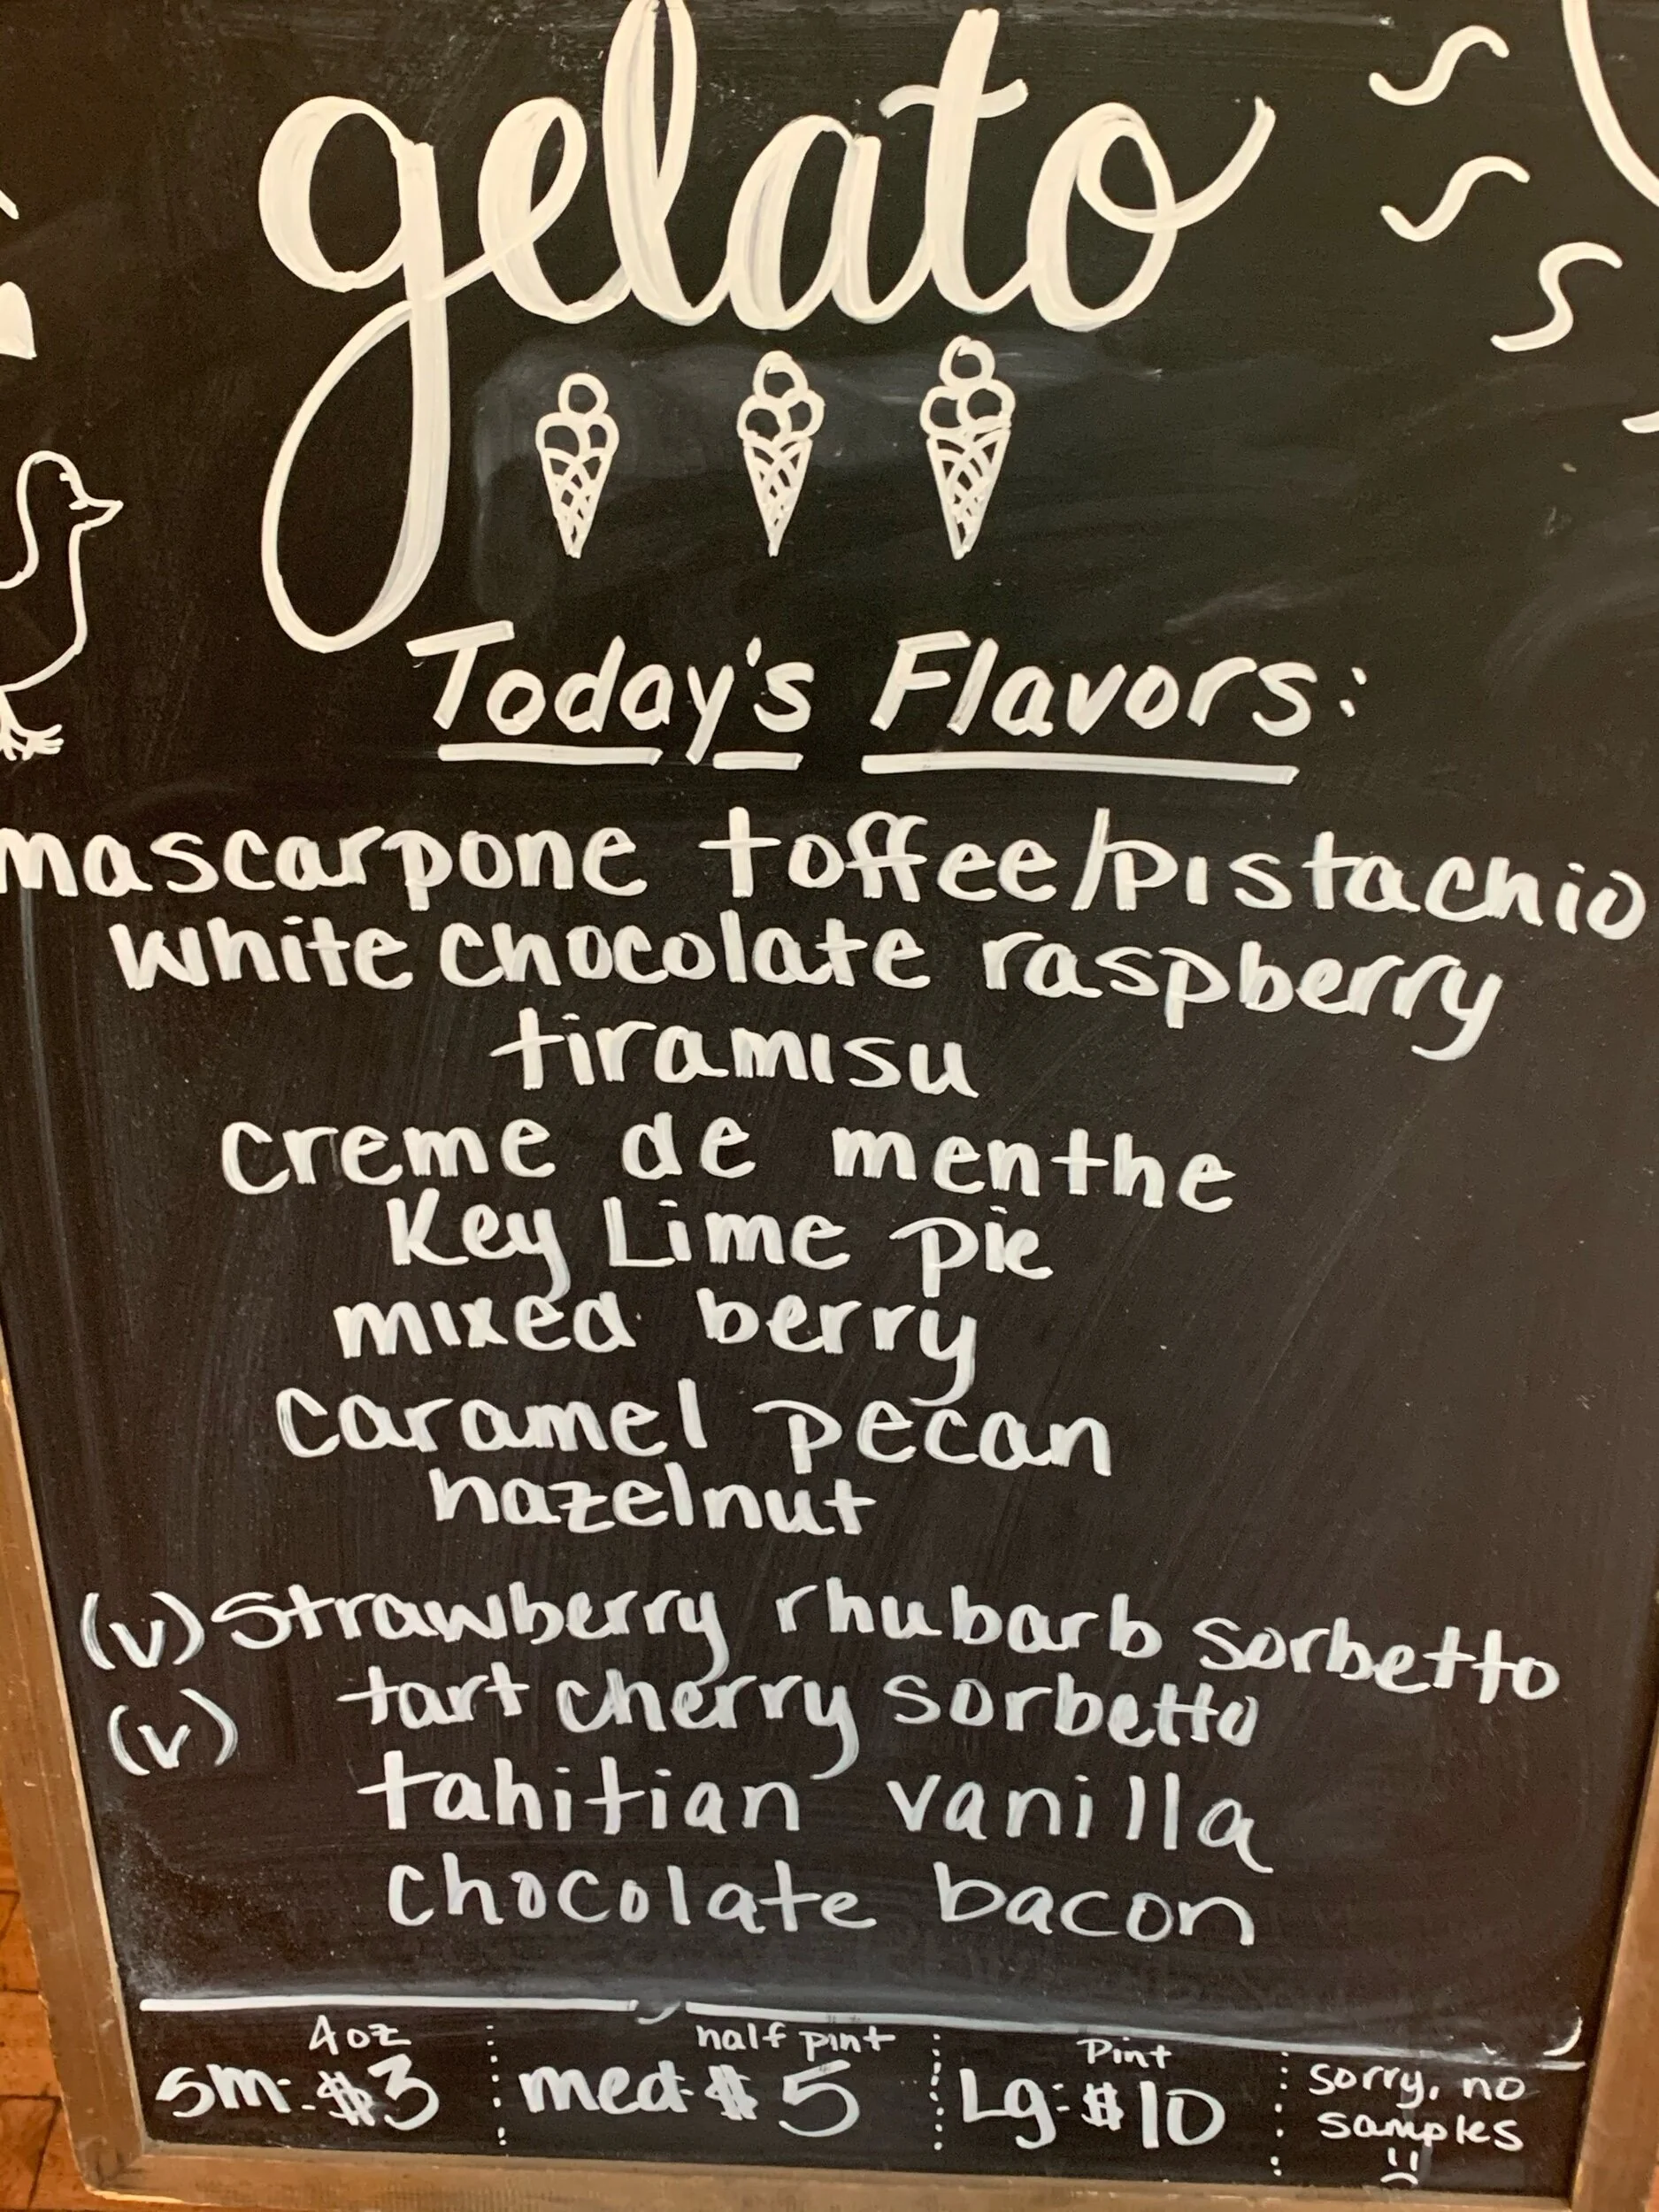 gelato
Today's Flavors:
mascarpone toffee/pistachio
white chocolate raspberry
tiramisu
creme de menthe
Key Lime pie
mixed berry
caramel pecan
hazelnut
(v) Strawberry rhubarb sorbetto
(v) tart cherry sorbetto
tahitian vanilla
chocolate bacon
4oz
sm: $3
half pint
med: $5
Pint
Lg: $10
sorry, no
samples